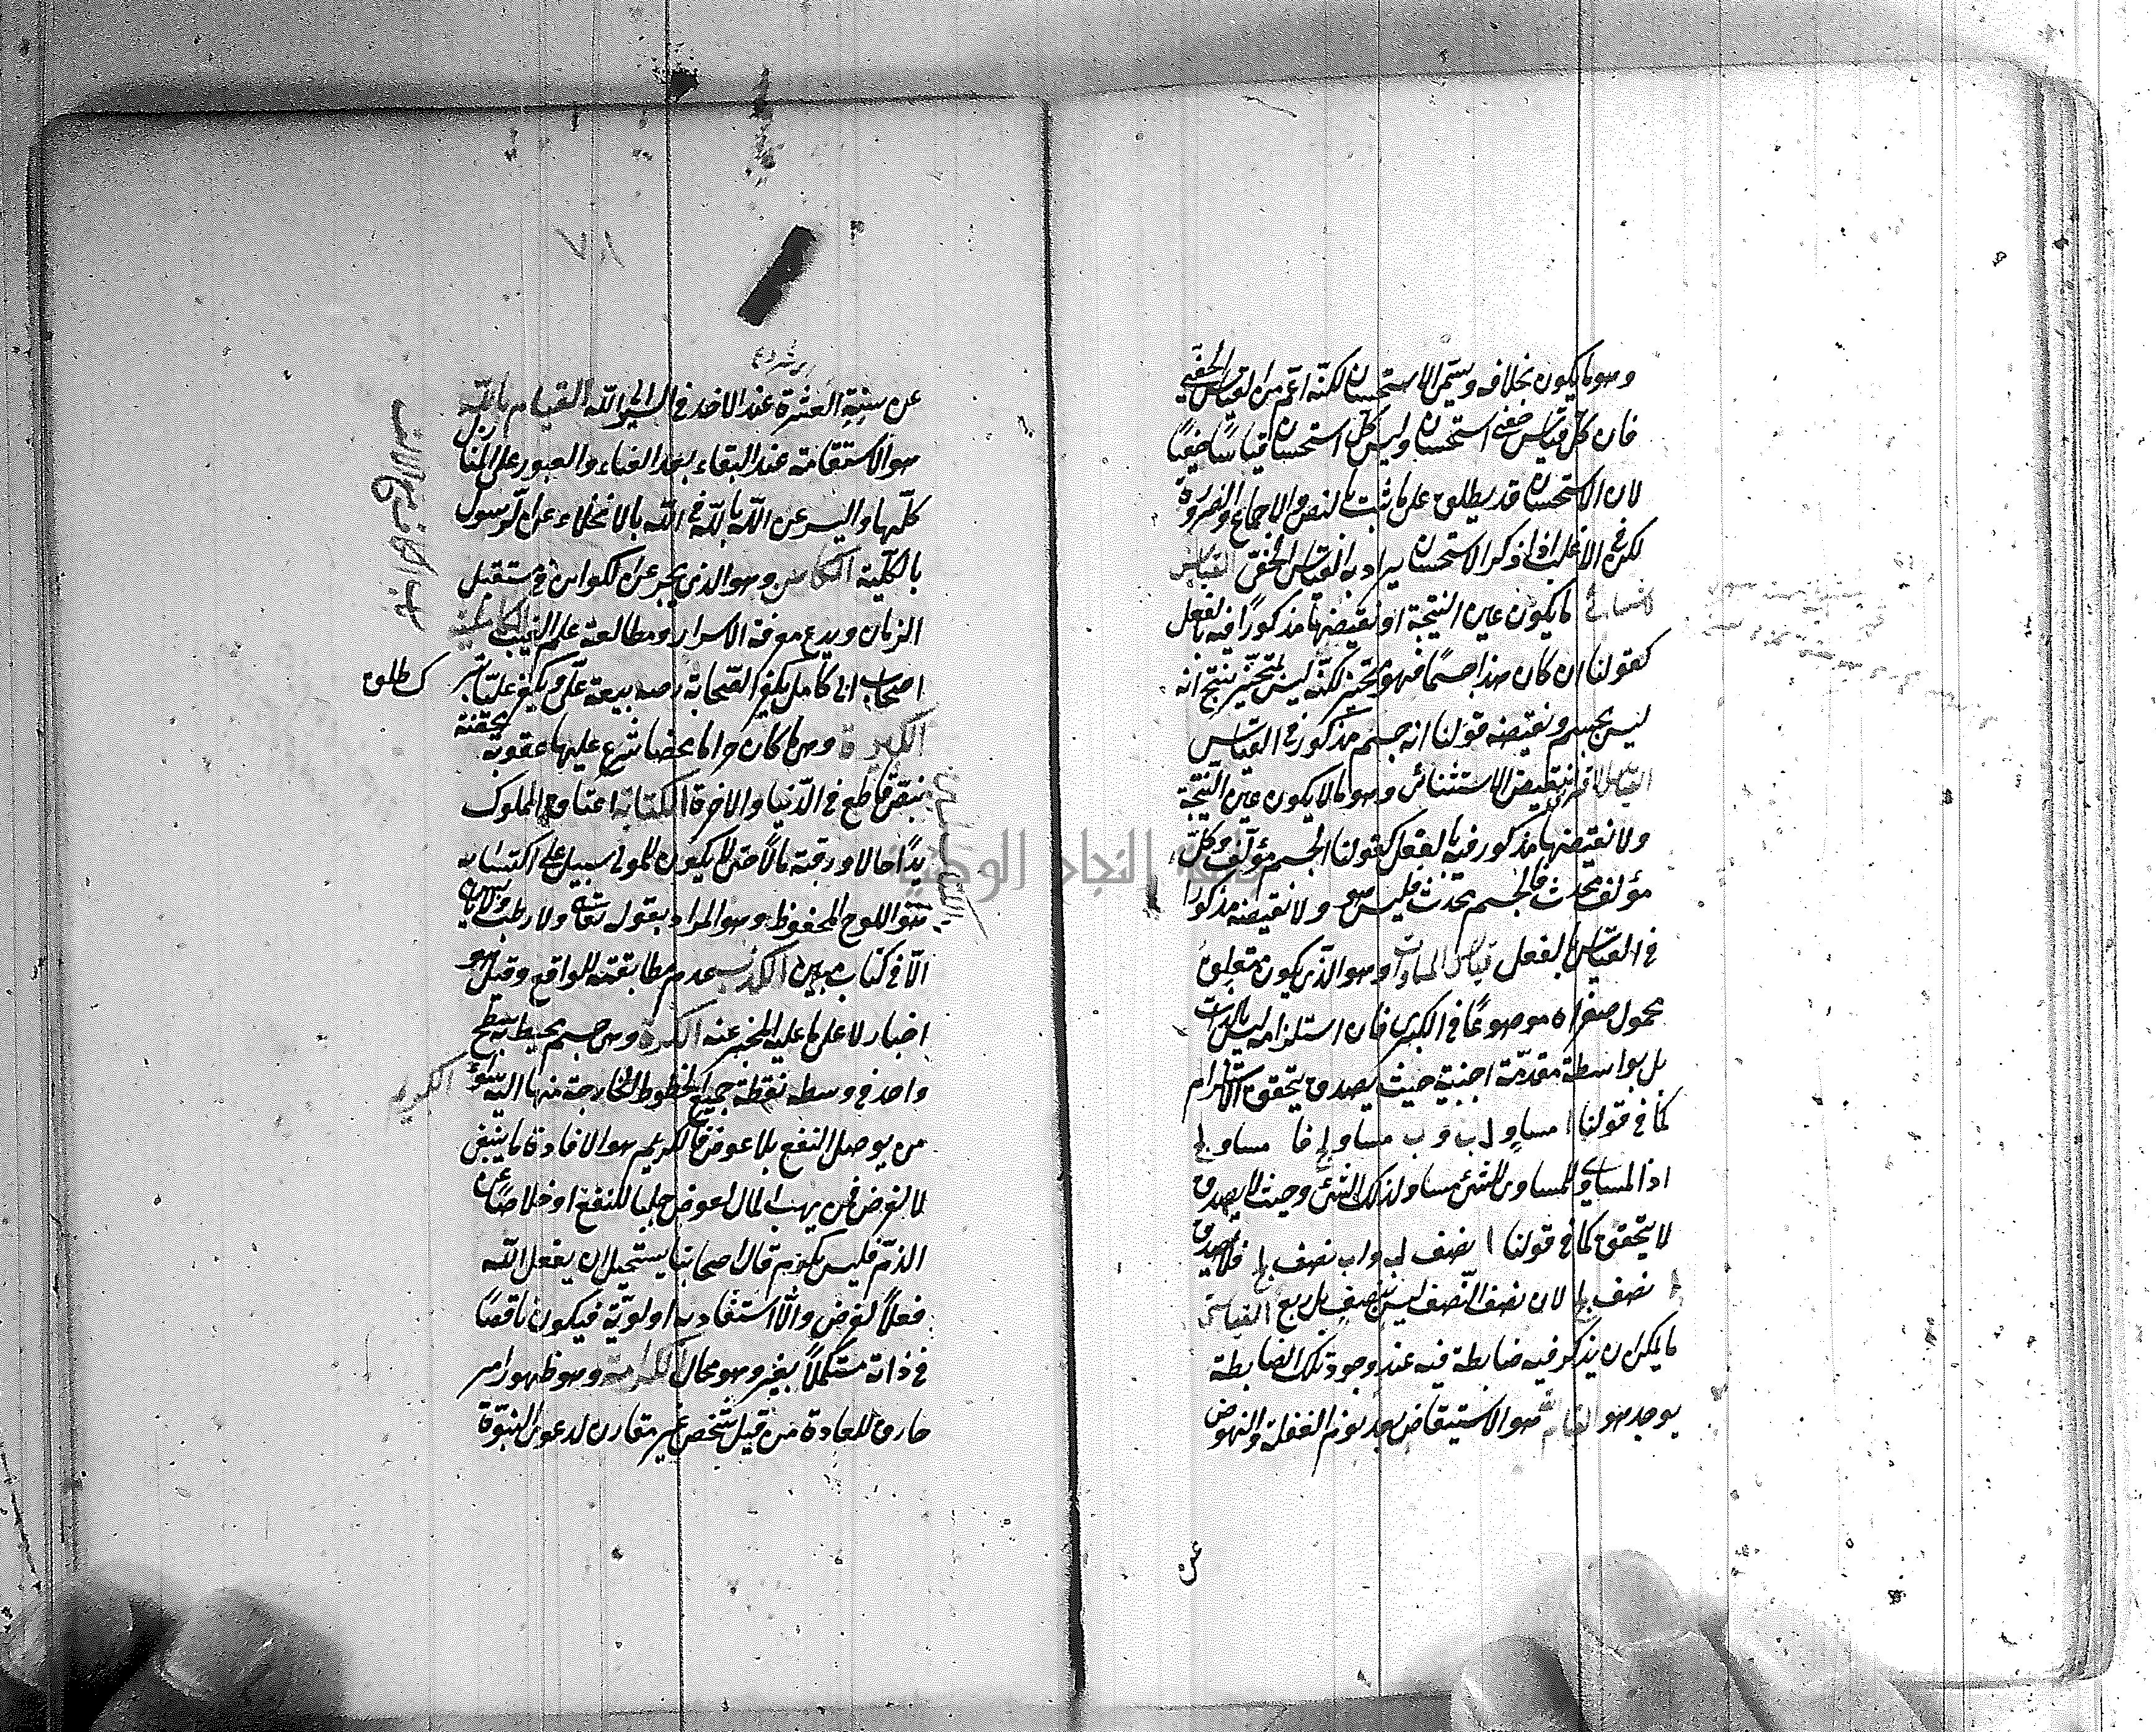 وهو ما يكون بخلافه ويسمى الاستحسان لكنه اعم من القياس الخفي
فان كل قياس خفي استحسان وليس كل استحسان قياسا خفيا
لان الاستحسان قد يطلق على ما ثبت بالنص والاجماع والضرورة
لكن في الاغلب اذا ذكر الاستحسان يراد به القياس الخفي القياس
ما يكون عين النتيجة او نقيضها مذكورا فيه بالفعل
كقولنا ان كان هذا جسما فهو متحيز لكنه ليس بمتحيز ينتج انه
ليس بجسم ونقيضه قولنا انه جسم مذكور في القياس
القياس الاقتراني نقيض الاستثنائي وهو ما لا يكون عين النتيجة
ولا نقيضها مذكورا فيه بالفعل كقولنا الجسم مؤلف وكل
مؤلف محدث فالجسم محدث فليس هو ولا نقيضه مذكورا
في القياس بالفعل قياس المساواة وهو الذي يكون متعلق
محمول صغراه موضوعا في الكبرى فان استلزامه ليس بالذات
بل بواسطة مقدمة اجنبية حيث يصدق يتحقق الاستلزام
كما في قولنا ا مساو ل ب و ب مساو لج فا مساو لج
اذ المساوي للمساوي للشئ مساو لذلك الشئ وحيث لا يصدق
لا يتحقق كما في قولنا ا نصف لب و ب نصف لج فلا يصدق
ا نصف لج لان نصف النصف ليس بنصف بل ربع القياسي
ما يمكن ان يذكر فيه ضابطة فيه عند وجود تلك الضابطة
يوجد هو القيام لله هو الاستيقاض بعد نوم الغفلة والنهوض
عن
عن سنة العثرة عند الاخذ في السير الى الله القيام بالله
هو الاستقامة عند البقاء بعد الفناء والعبور على المنازل
كلها والسير عن الله بالله في الله بالانخلاء عن الرسوم
بالكلية الكاهن وهو الذي يخبر عن الكواين في مستقبل
الزمان ويدعي معرفة الاسرار ومطالعة علم الغيب الكاملية
اصحاب ابي كامل يكفر الصحابة رضه ببيعة علي ويكفر عليا بترك طلب
الكبيرة وهي ما كان حراما محضا شرع عليها عقوبة محضة
بنص قاطع في الدنيا والاخرة الكتابة اعتاق المملوك
يدا حالا ورقبة مالا حتى لا يكون للمولى سبيل على اكتسابه
هو اللوح المحفوظ وهو المراد بقوله تعالى ولا رطب ولا يابس
الا في كتاب مبين الكذب عدم مطابقته للواقع وقيل هو
اخبار لا على ما عليه المخبر عنه الكرة وهي جسم يحيط به سطح
واحد في وسطه نقطة جميع الخطوط الخارجة منها اليه سواء الكريم
من يوصل النفع بلا عوض فالكريم هو الافادة ما ينبغي
لا لغرض فمن يهب المال لعوض جلبا للنفع او خلاصا عن
الذم فليس بكريم قال اصحابنا يستحيل ان يفعل الله
فعلا لغرض والا استفاد به اولوية فيكون ناقصا
في ذاته مستكملا بغيره وهو محال الكرامة وهو ظهور امر
خارق للعادة من قبل شخص غير مقارن لدعوى النبوة